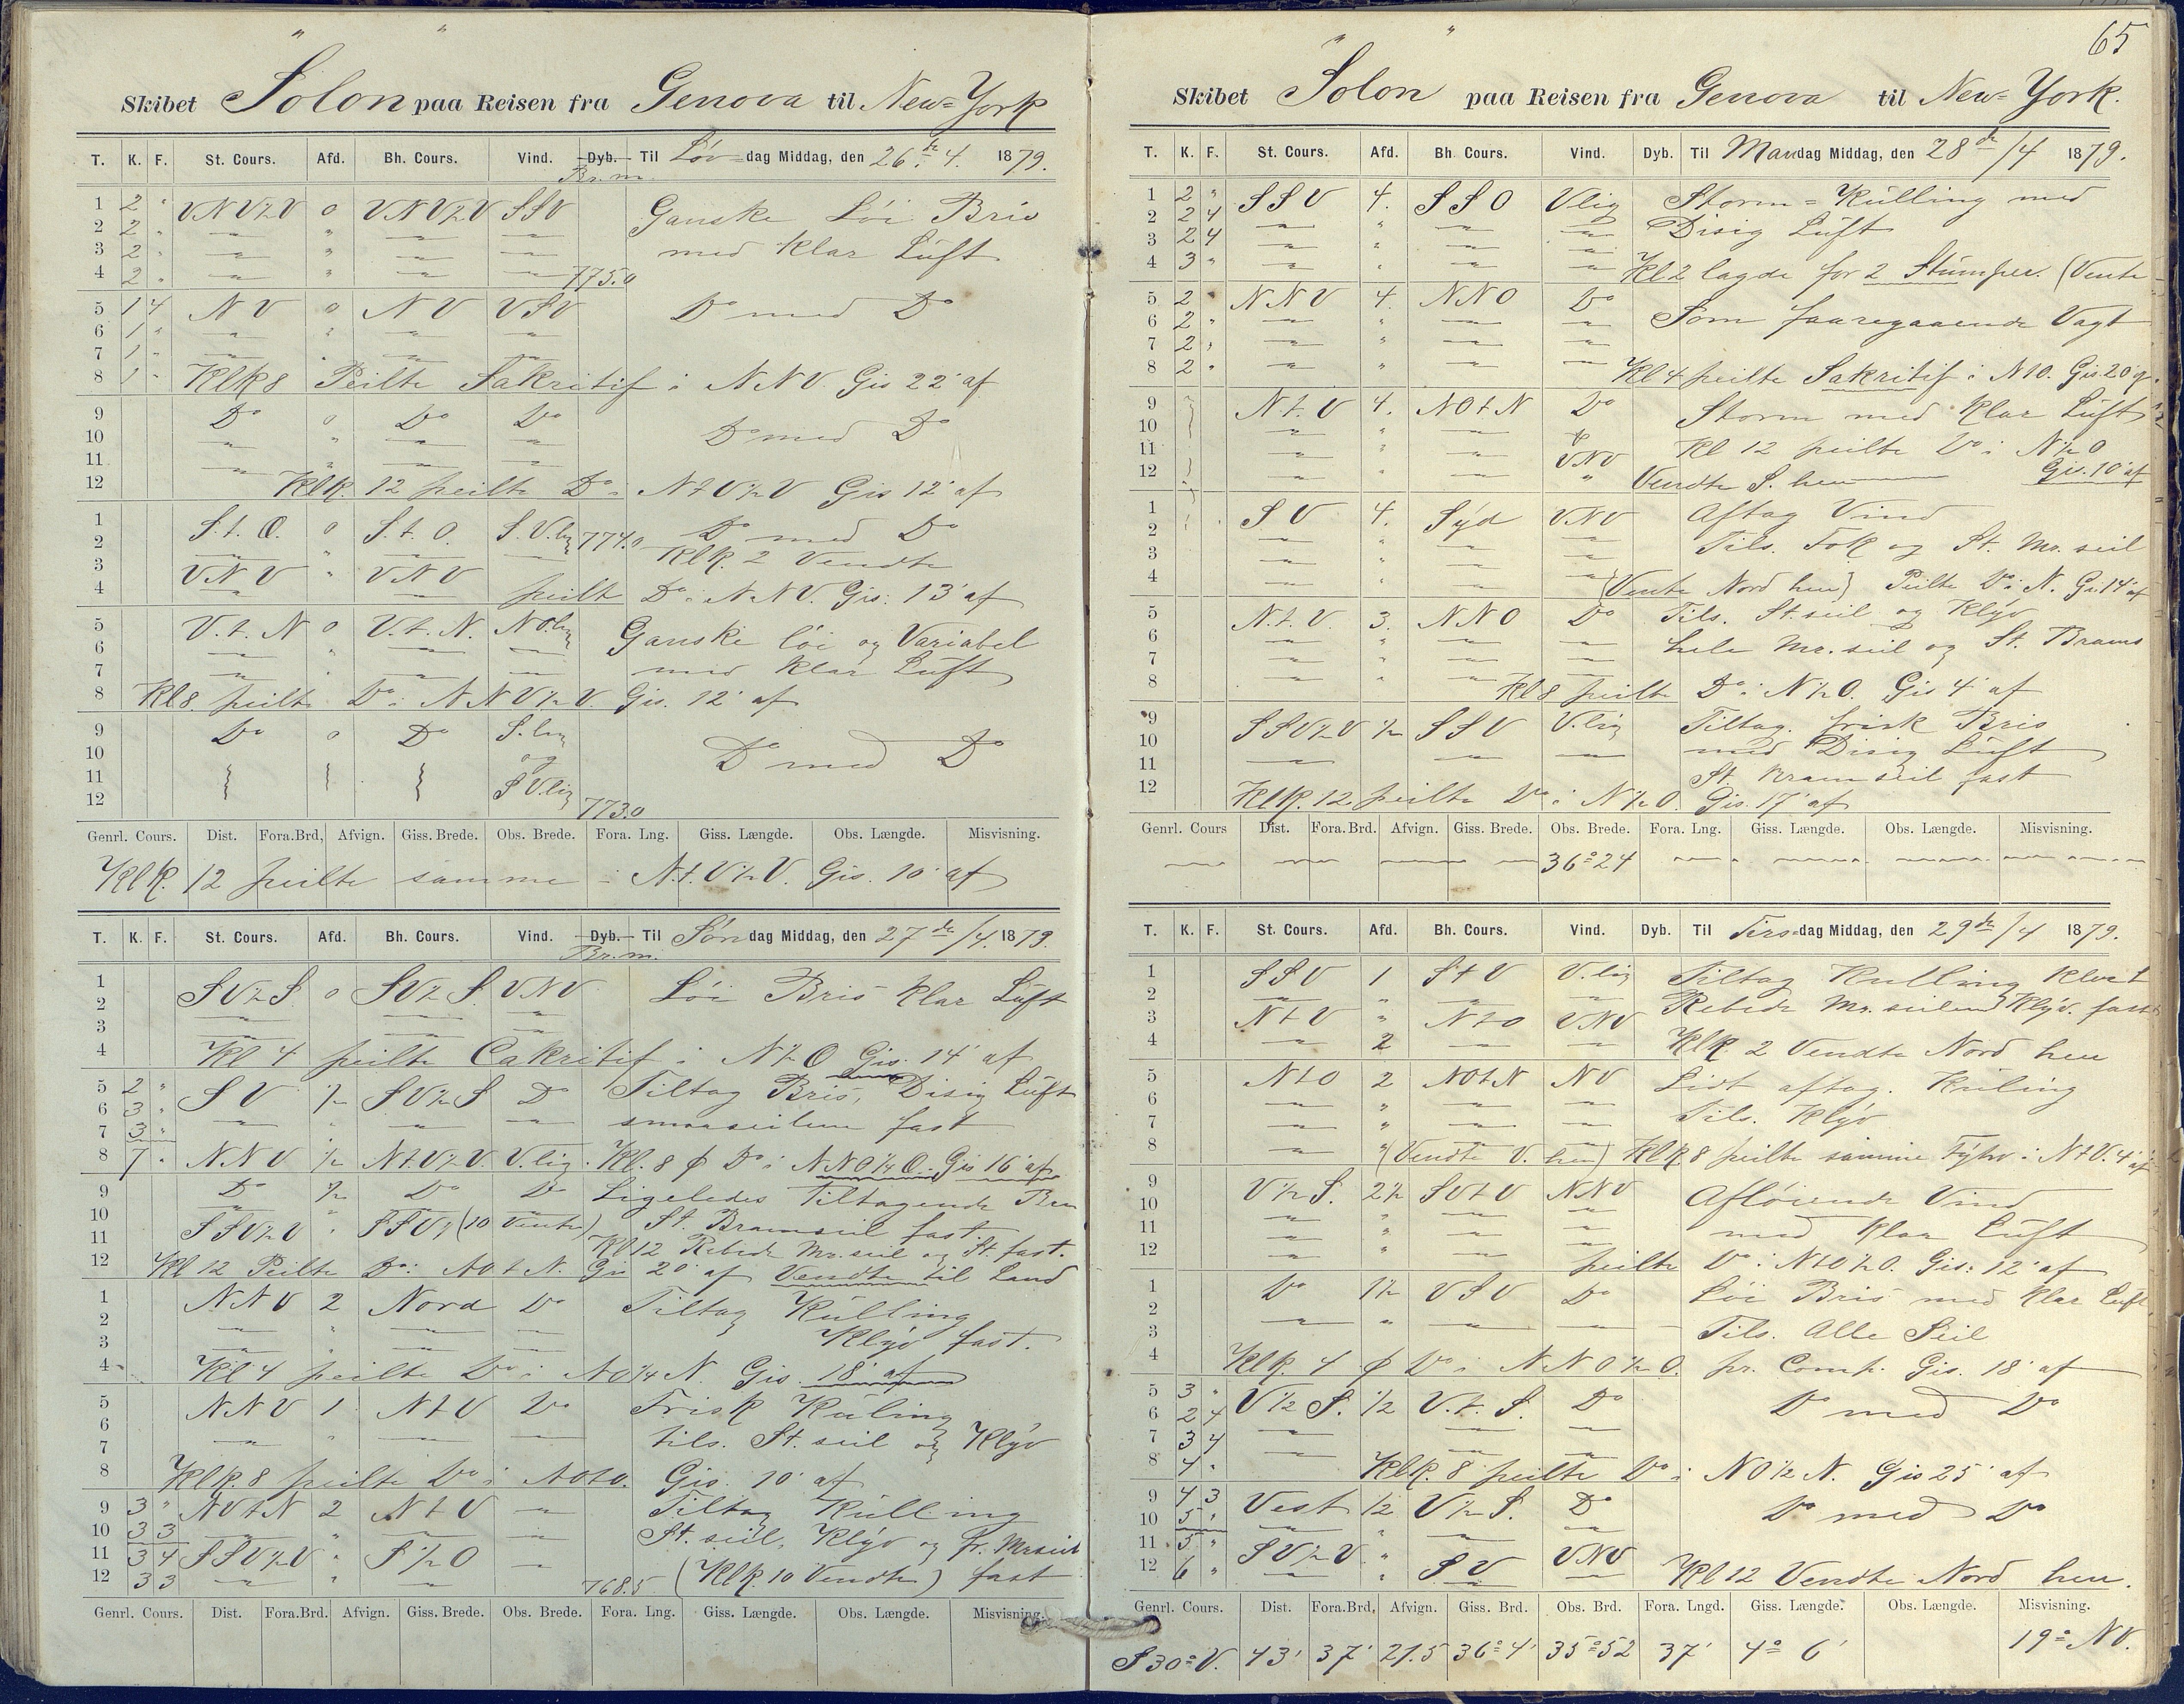 Skibet Solon paa Reisen fra Genova til New-York
T. K. F. St. Cours. Afd. Bh. Cours. Vind. Dyb. Til Løv-dag Middag, den 26de 4. 1879.
Br.m.
1 2 " VNV½V 0 VNV½V SSV Ganske Løi Bris
2 2 "
3 2 " med klar Luft
4 2 " 775.0
5 1 4 NV 0 NV VSV Do med Do
6 1 "
7 1 "
8 1 " Klk 8 Peilte Sakritif i NNV. Gis 22' af
9 Do 0 Do Do
10 Do med Do
11
12 Klk. 12 peilte Do i NtV½V Gis 12' af
1 S.t.O. 0 S.t.O. S.V.lig 774.0 Do med Do
2 Klk. 2 Vendte
3 VNV " VNV
4 peilt Do i NNV. Gis: 13' af
5 V.t.N 0 V.t.N. NO.lig Ganske löi og Variabel
6
7 med klar Luft
8 Kl 8. peilte Do i NNV½V. Gis. 12' af
9 Do 0 Do S.lig
10 og Do med Do
11 SV.lig
12 773.0
Genrl. Cours. Dist. Fora.Brd, Afvign. Giss. Brede. Obs. Brede. Fora. Lng. Giss. Længde. Obs. Længde. Misvisning.
Klk. 12 peilte samme i N.t.V½V. Gis. 10' af
T. K. F. St. Cours. Afd. Bh. Cours. Vind. Dyb. Til Søndag Middag, den 27de/4. 1879.
Br.m.
1 SV½S 0 SV½S. VNV Löi Bris klar Luft
2
3
4 Kl 4 peilte Cakritif i N½O Gis. 14' af
5 2 " SV ½ SV½S Do Tiltag Bris, Disig Luft
6 3 "
7 3 " smaaseilene fast
8 7 " NNV ½ Nt.V½V. V.lig. Kl. 8 φ Do i NNO¼O. Gis 16' af
9 Do ½ Do Do Ligeledes Tiltagende
10 St. Bramseil fast
11 SSV½V " SSV (10 Vente) Kl 12 Rebede Mr. seil og St. fast.
12 Kl 12 Peilte Do: NOtN. Gis 20' af Vendte til Land
1 NNV 2 Nord Do Tiltag Kulling
2
3 Klyv fast.
4 Kl 4 peilte Do i NO¼N. Gis. 18' af
5 NNV 1 NtV Do Frisk Kuling
6
7 tils. St. seil og Klyv
8 Klk. 8 peilte Do i NOtO. Gis. 10' af
9 3 " NVtN 2 NtV Tiltag Kulling
10 3 3 St. seil, Klyv og Fr. Mrseil
11 3 4 SSV½V " S½O
12 3 3 768.5 (Klk. 10 Vendte) fast
Genrl. Cours. Dist. Fora.Brd. Afvign. Giss. Brede. Obs. Brede. Fora. Lng. Giss. Længde. Obs. Længde. Misvisning.
65
Skibet Solon paa Reisen fra Genova til New-York.
T. K. F. St. Cours. Afd. Bh. Cours. Vind. Dyb. Til Mandag Middag, den 28de/4 1879.
1 2 " SSV 4. SSO Vlig Storm-Kulling med
2 2 4 Disig Luft
3 2 4
4 3 " Kl 2 lagde for 2 Stumper. (Vente
5 2 " NNV 4. NNO Do Som faaregaaende Vagt
6 2 "
7 2 "
8 2 " Kl 4 peilte Sakritif i NtO. Gis 20'
9 N.t.V 4. NOtN Do Storm med klar Luft
10
11 VNV Kl 12 peilte Do i N½O
12 Vendte S. hen Gis. 10' af
1 SV 4. Syd VNV Aftag Vind
2 Tils. Fok og St. Mr. seil
3
4 (Vente Nord hen) Peilte Do i N. Gis 14' af
5 N.t.V. 3. NNO Do Tils. St. seil og Klyv
6 hele Mr. seil og St. Brams
7
8 Kl 8 peilte Do i N½O. Gis 4' af
9 SSV½V ½ SSV V.lig Tiltag. frisk Bris
10 med Disig Luft
11 St. Bramseil fast
12 Klk. 12 peilte Do i N½O. Gis. 17' af
Genrl. Cours Dist. Fora.Brd. Afvign. Giss. Brede. Obs. Brede. Fora. Lng. Giss. Længde. Obs. Længde. Misvisning.
36°24
T. K. F. St. Cours. Afd. Bh. Cours. Vind. Dyb. Til Tirs-dag Middag, den 29de/4 1879.
1 SSV 1 StV V.lig Tiltag Kulling
2 Rebede Mr. seilene Klyv. fast
3 NtV " NtO VNV
4 2 Klk 2 Vendte Nord hen
5 NtO 2 NOtN NV Lidt aftag. Kuling
6
7 Tils. Klyv
8 (Vendte V. hen) Klk 8 peilte samme Fyhr i NtV. 4' af
9 V½S. 2½ SVtV NNV Afløiende Vind
10
11 med klar Luft
12 peilte Do i NtO½O. Gis: 12' af
1 Do 1½ VSV Do Löi Bris med klar Luft
2
3 Tils. Alle Seil
4 Klk. 4 φ Do i NNO½O. pr. Comp. Gis. 18' af
5 3 " V½S. ½ V.t.S. Do Do med Do
6 2 4
7 3 4
8 4 " Klk. 8 peilte Do i NO½N. Gis 25' af
9 4 3 Vest ½ V½S. Do Do med Do
10 5 "
11 5 " SV½V " SV VNV
12 6 " Kl 12 Vendte Nord hen.
Genrl. Cours. Dist. Fora.Brd, Afvign. Giss. Brd. Obs. Brd. Fora. Lngd. Giss. Længde. Obs. Længde. Misvisning.
S30°V. 43' 37' 21.5 36°4' 35°52 37' 4° 6' 19° NV.